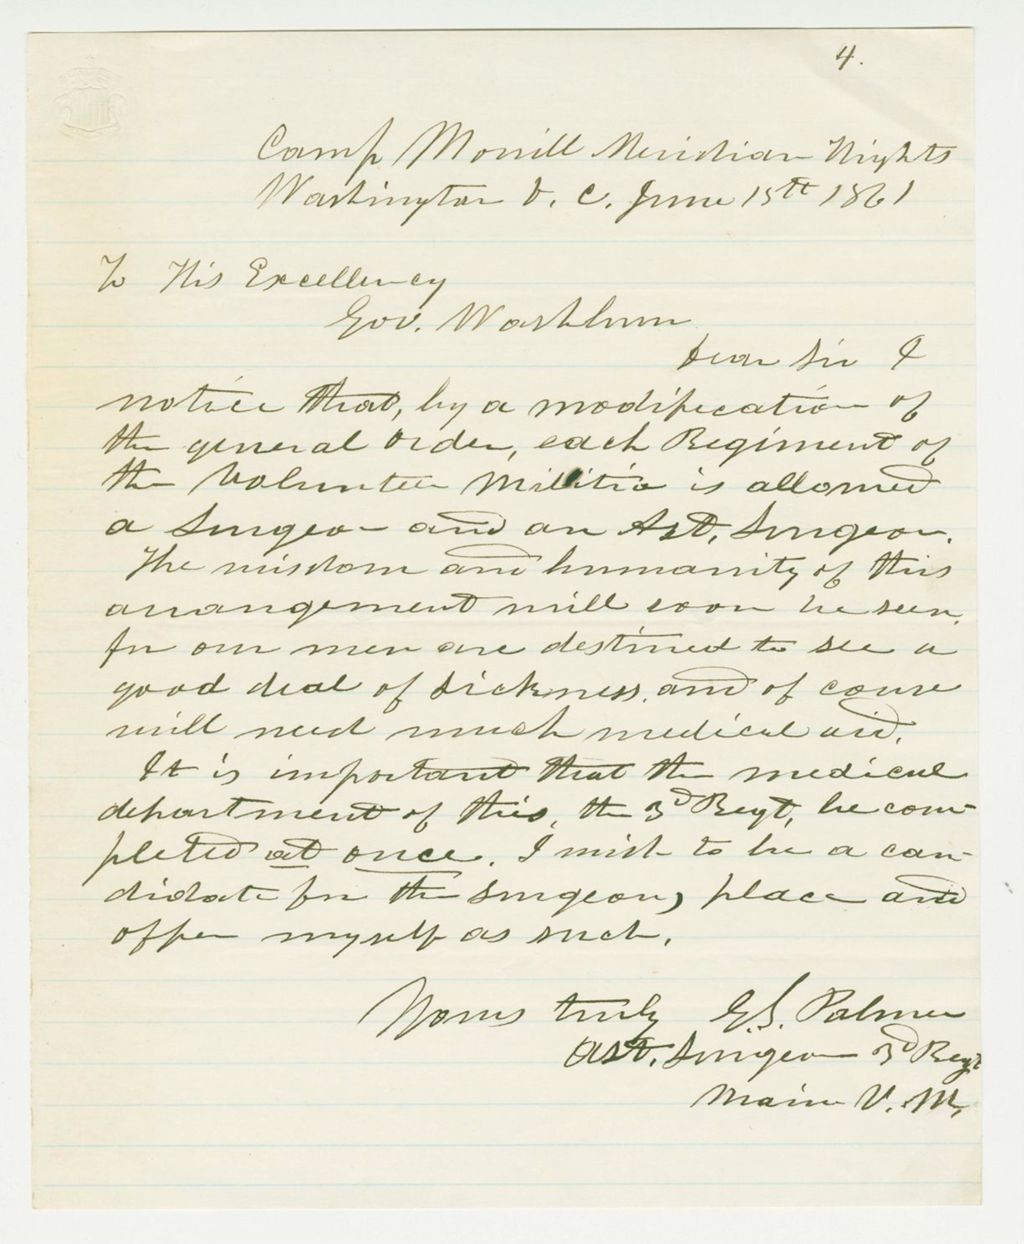 4.
Camp Morrill Meridian Hights
Washington D. C. June 15th 1861
To His Excellency
Gov. Washburn
Dear Sir I
notice that, by a modification of
the general order, each Regiment of
the Volunteer Militia is allowed
a Surgeon and an Ast. Surgeon.
The wisdom and humanity of this
arrangement will soon be seen,
for our men are destined to see a
good deal of sickness, and of course
will need much medical aid.
It is important that the medical
department of this, the 3d Regt, be com-
pleted at once. I wish to be a can-
didate for the surgeon, place and
offer myself as such.
Yours truly G. S. Palmer
Ast. Surgeon 3d Regt
Maine V. M.